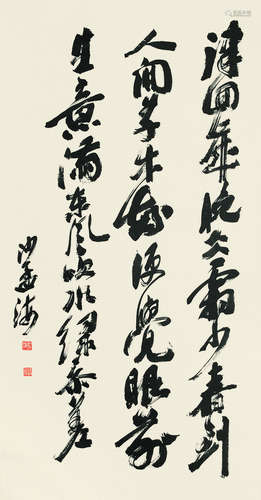 律回岁晚冰霜少春到
人间草木知便觉眼前
生意满东风吹水绿参差
沙孟海